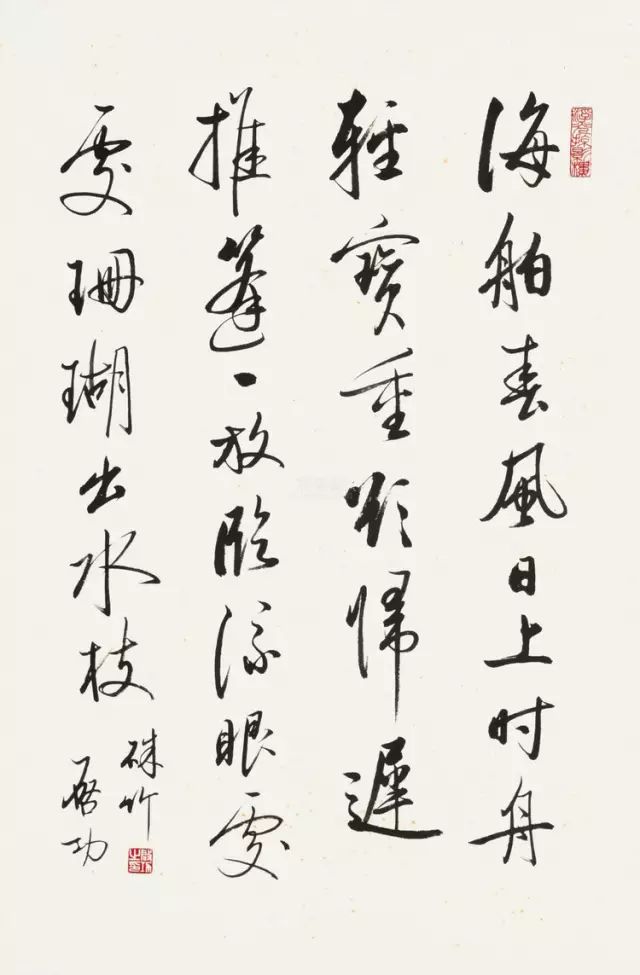 海舶春風日上时舟
輕寶重欲歸遲
推篷一放臨流眼處
處珊瑚出水枝
硃竹
啟功